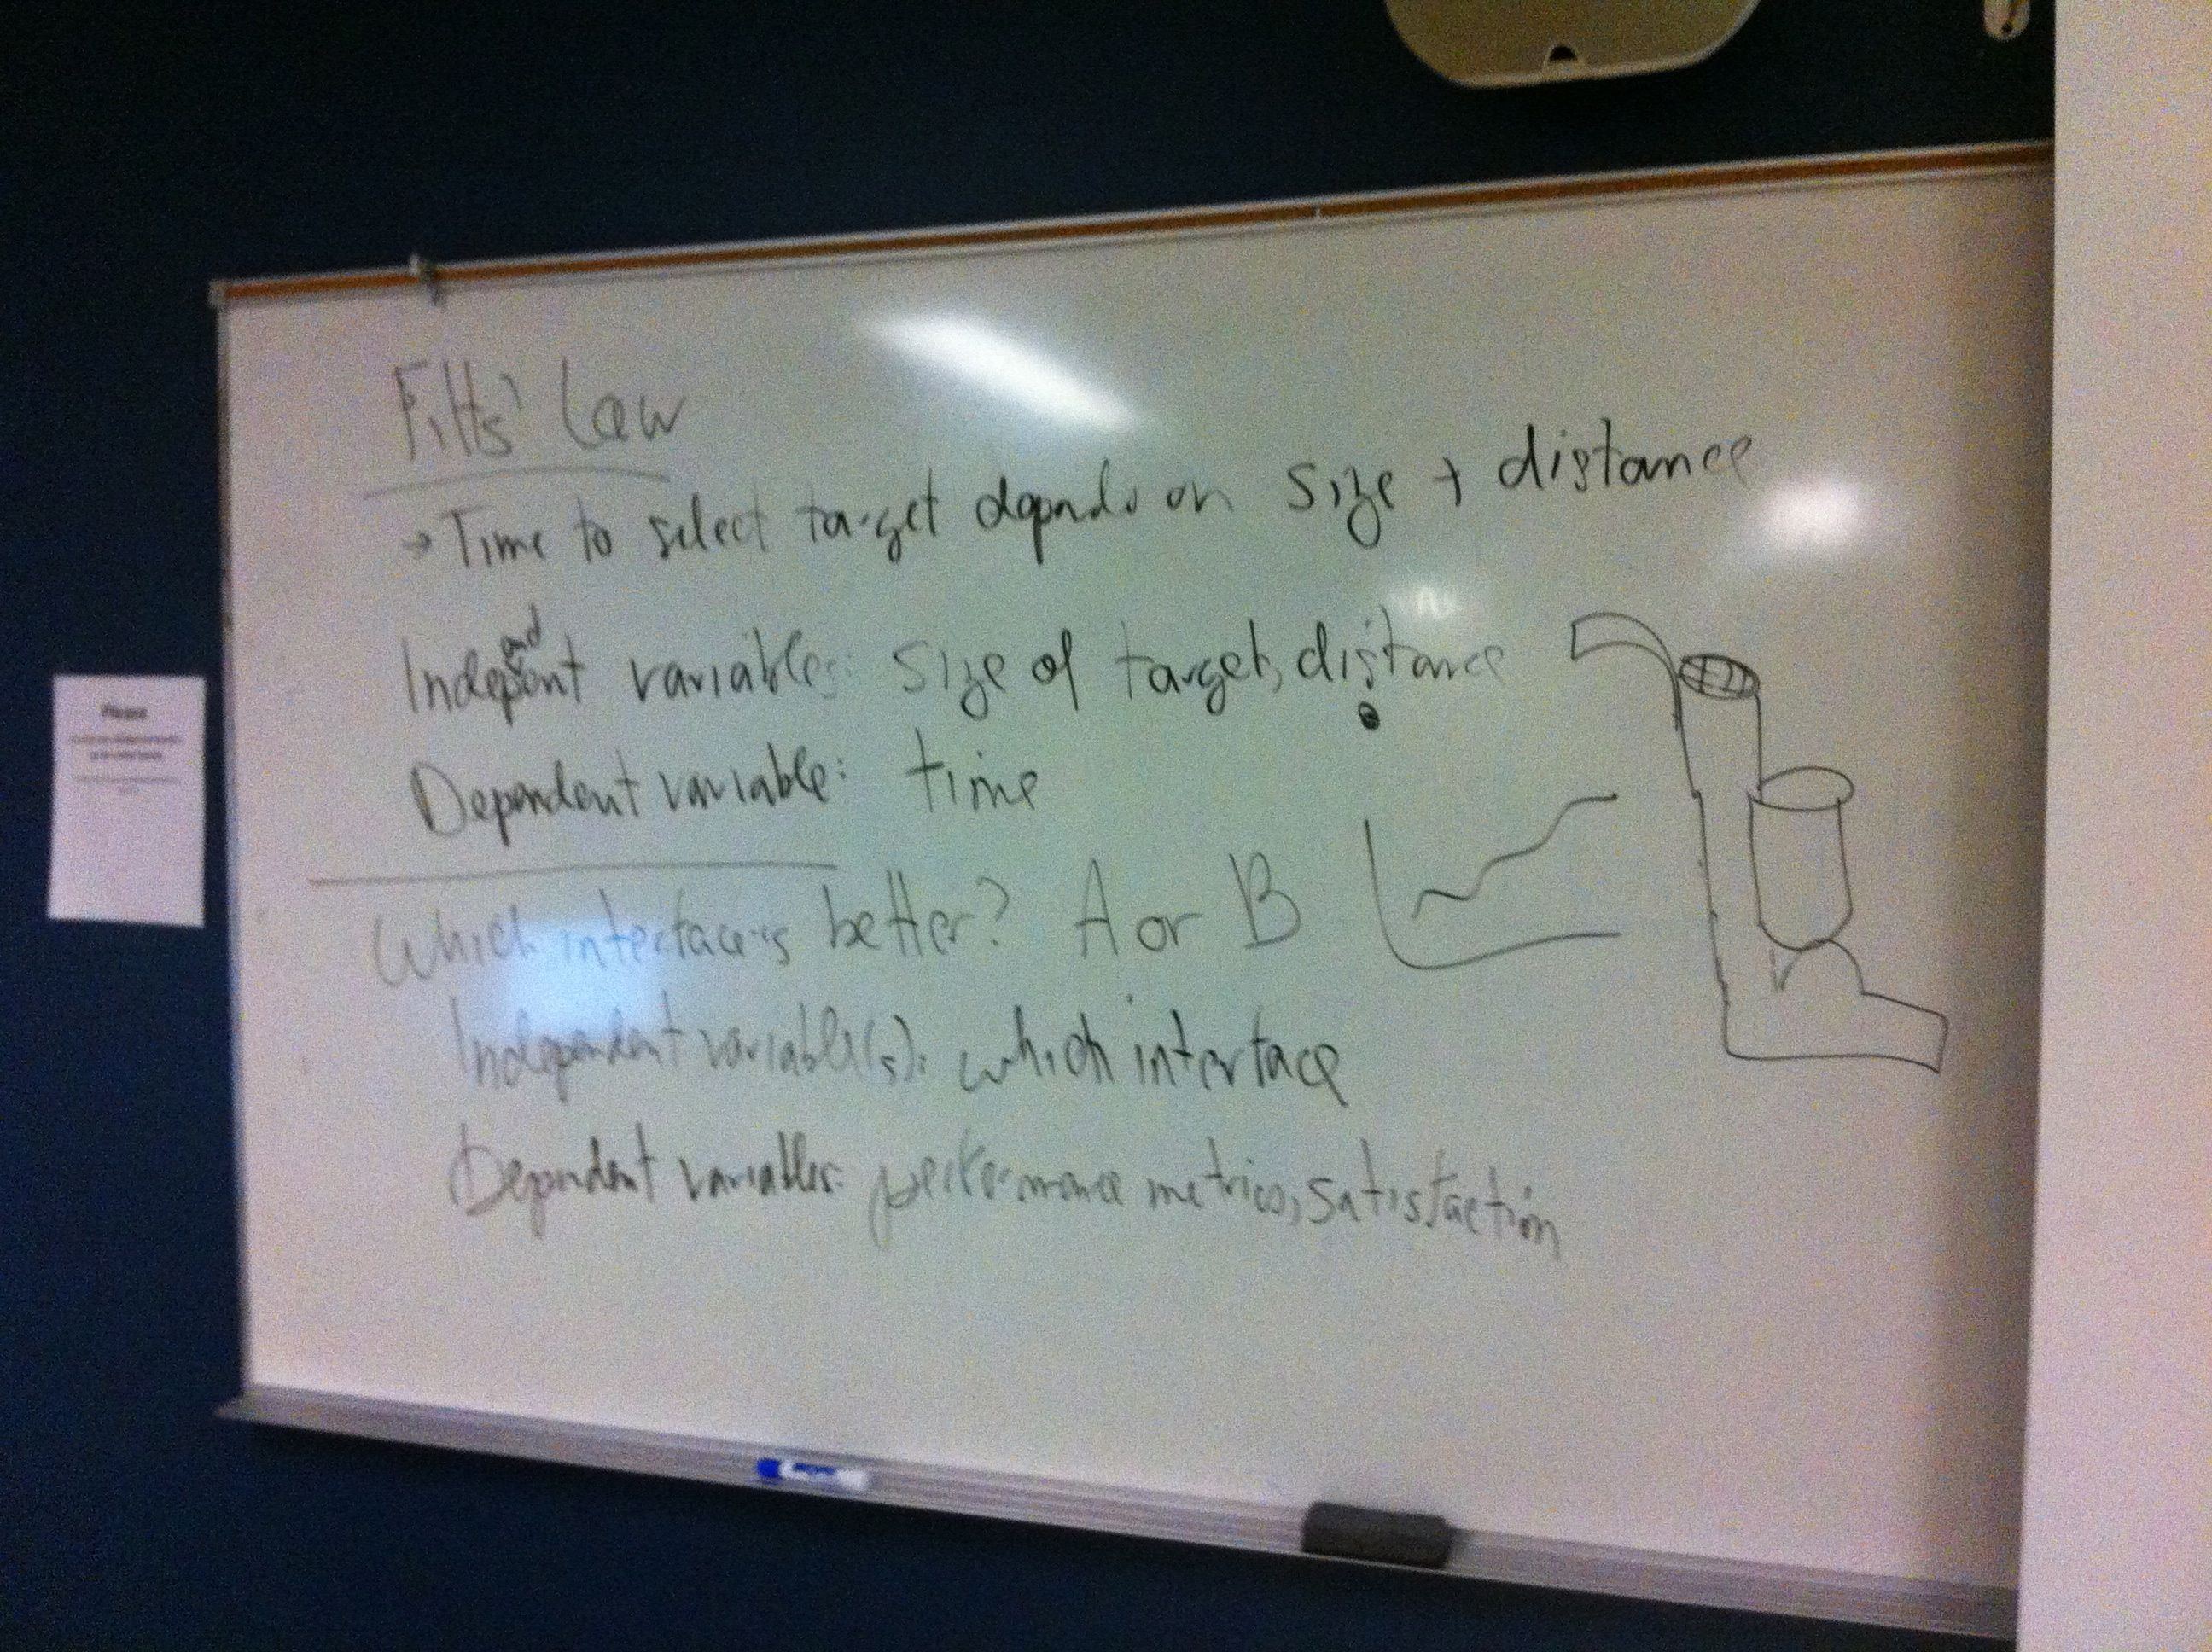 Fitts' Law
→ Time to select target depends on size + distance
Independent variables: size of target, distance
Dependent variable: time
Which interface is better? A or B
Independent variable(s): which interface
Dependent variables: performance metrics, satisfaction
Please